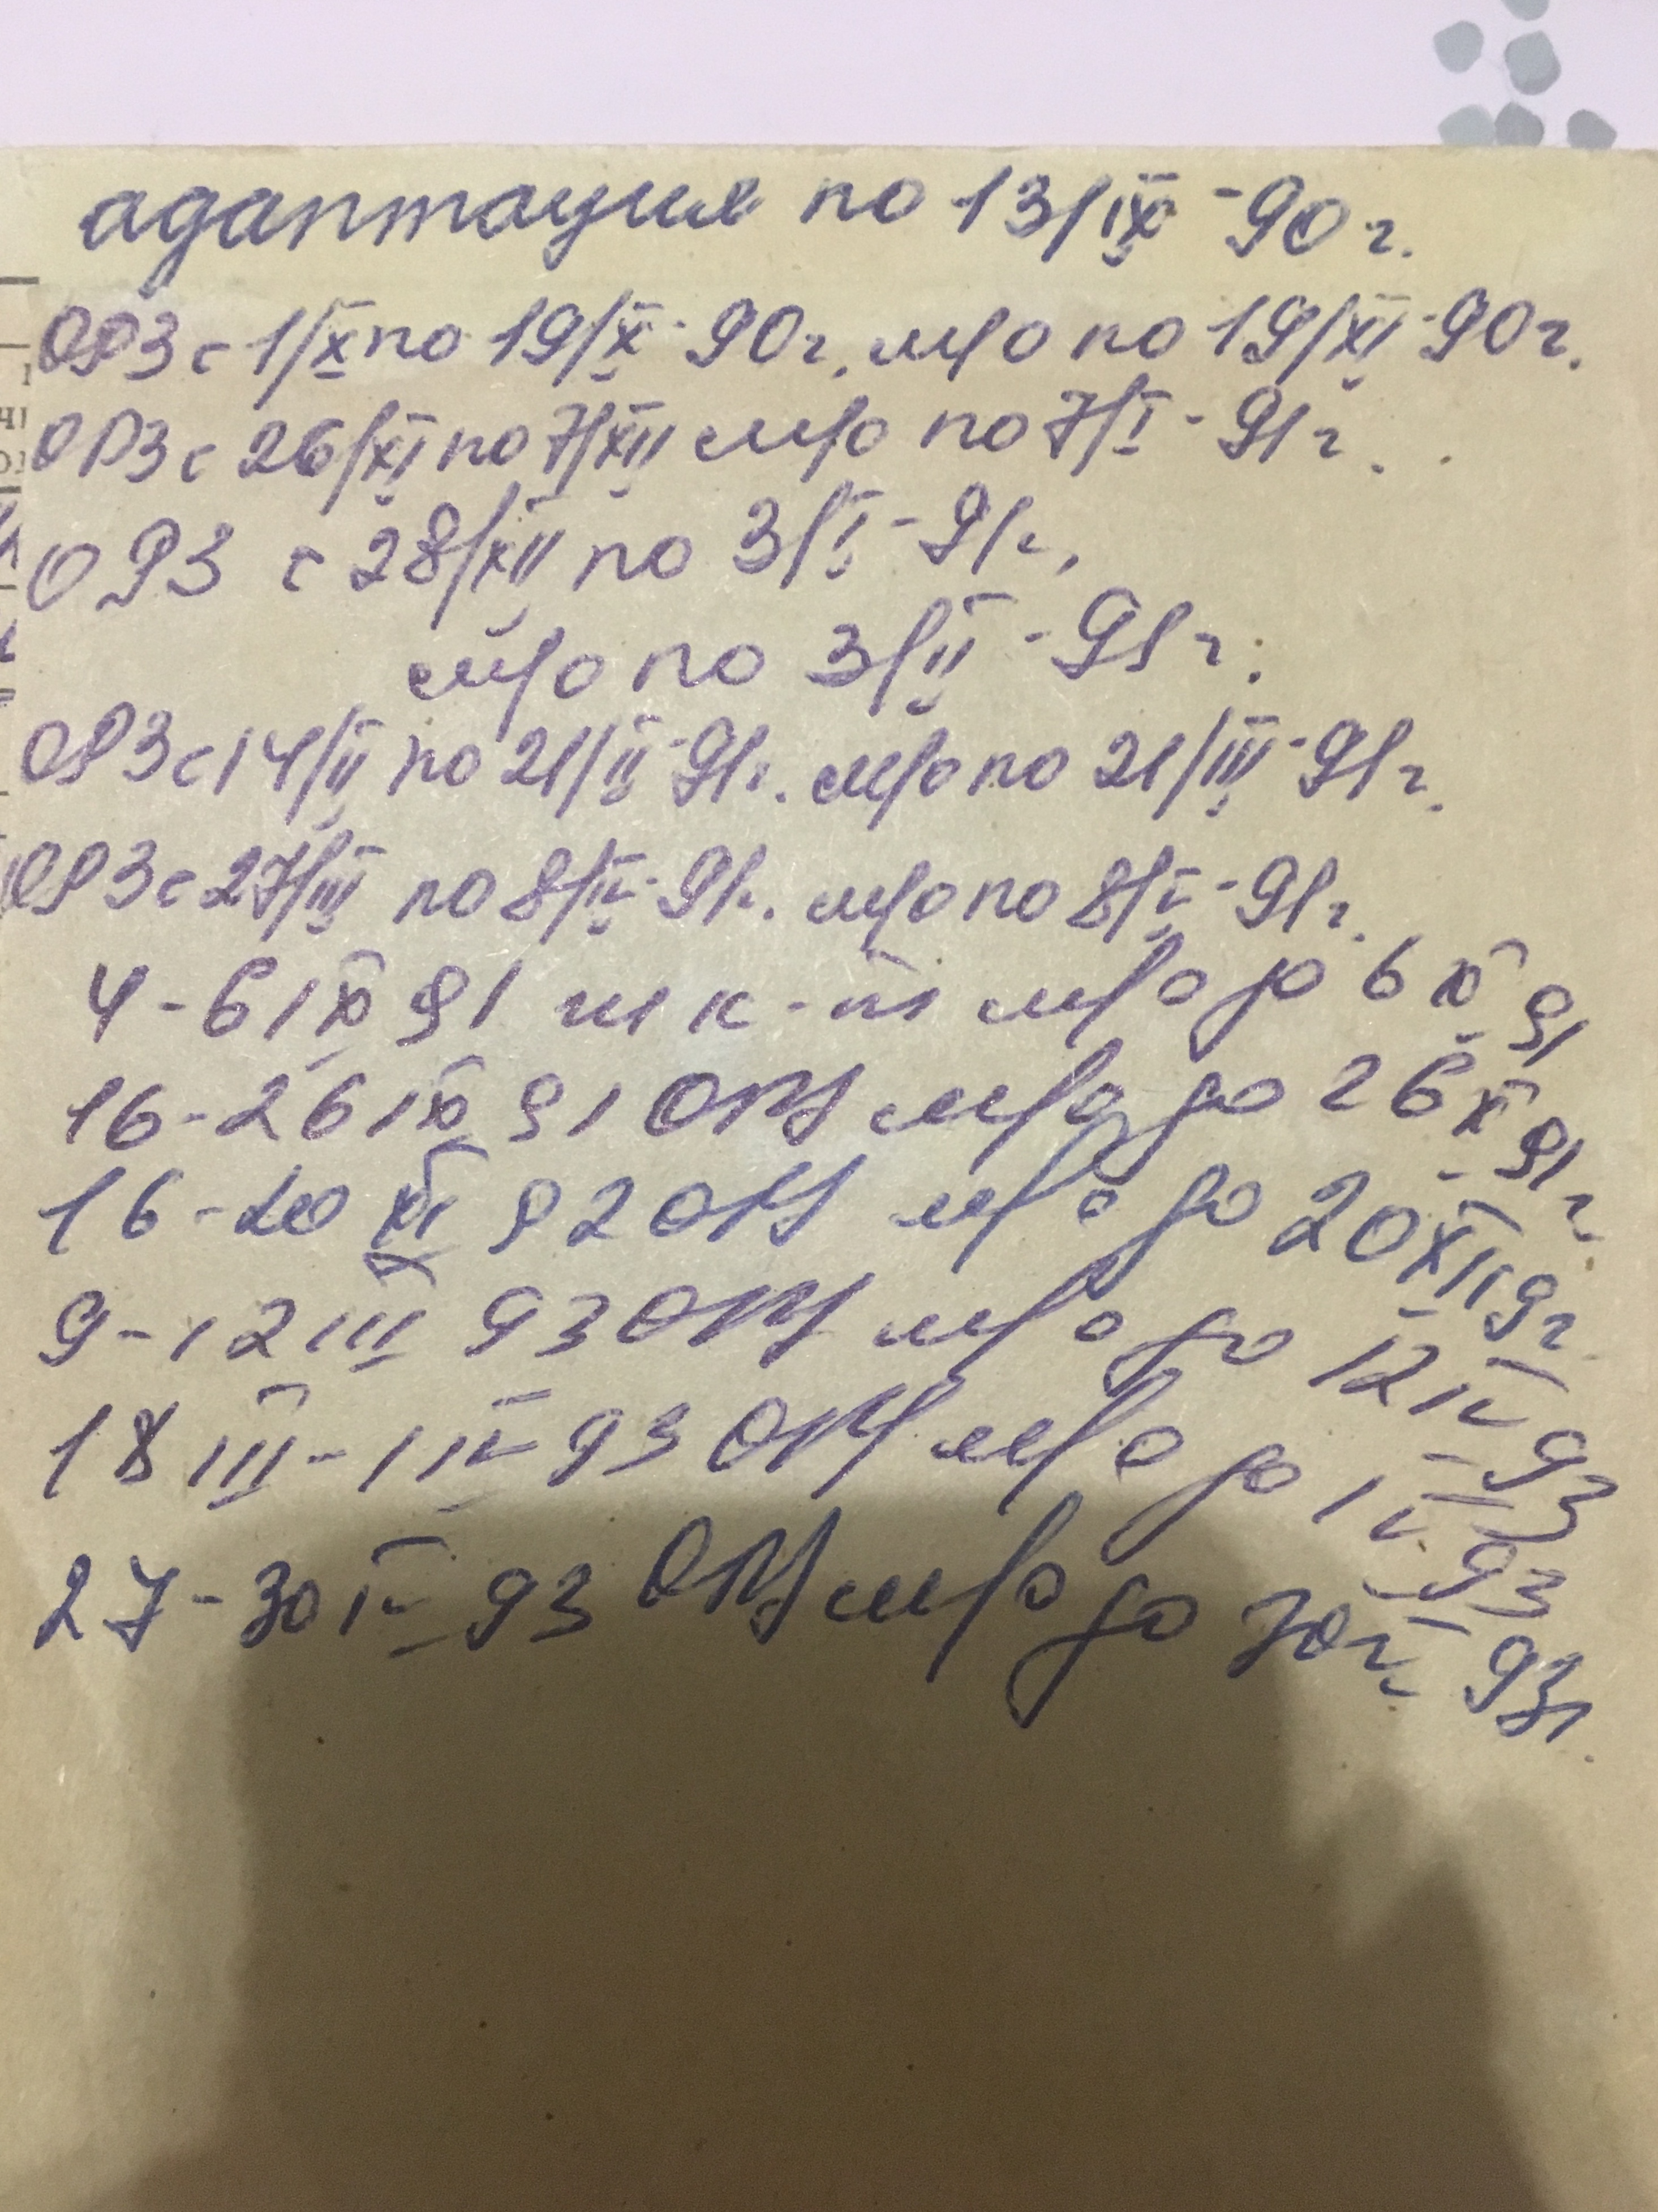 адаптация по 13/IX - 90 г.
ОРЗ с 1/X по 19/X - 90 г. м/о по 19/XI - 90 г.
ОРЗ с 26/XI по 7/XII м/о по 7/I - 91 г.
ОРЗ с 28/XII по 3/I - 91 г.
м/о по 3/II - 91 г.
ОРЗ с 14/II по 21/II - 91 г. м/о по 21/III - 91 г.
ОРЗ с 27/III по 8/IV - 91 г. м/о по 8/V - 91 г.
4 - 6 IX 91 м/о до 6 X 91
16 - 26 IX 91 м/о до 26 X 91 г
16 - 20 XI 92 м/о до 20 XII 92
9 - 12 III 93 м/о до 12 IV 93
18 III - 1 IV 93 м/о до 1 V 93
27 - 30 IV 93 м/о до 30 V 93 г.